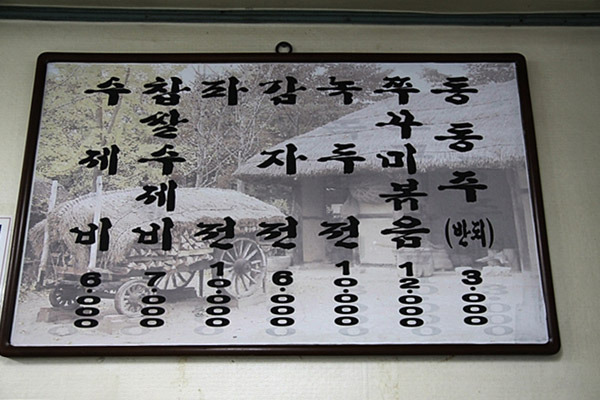 수제비 6.000
찹쌀수제비 7.000
파전 10.000
감자전 6.000
녹두전 10.000
쭈꾸미볶음 12.000
동동주(반되) 3.000